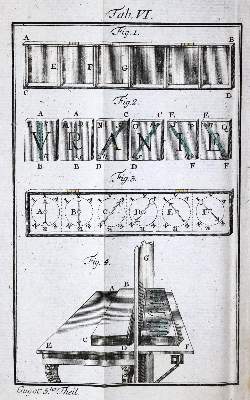 Tab. VI.
Fig. 1.
A B
E F G
C D
Fig. 2.
A A N C C E E O
V R A N I E
B B D D F F
Fig. 3.
A B C D E F
Fig. 4.
G
A B
C D
E F
Guyot 3.ter Theil.